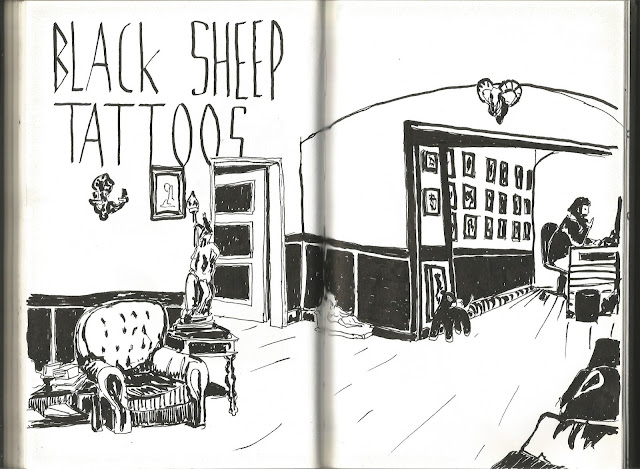 BLACK SHEEP
TATTOOS